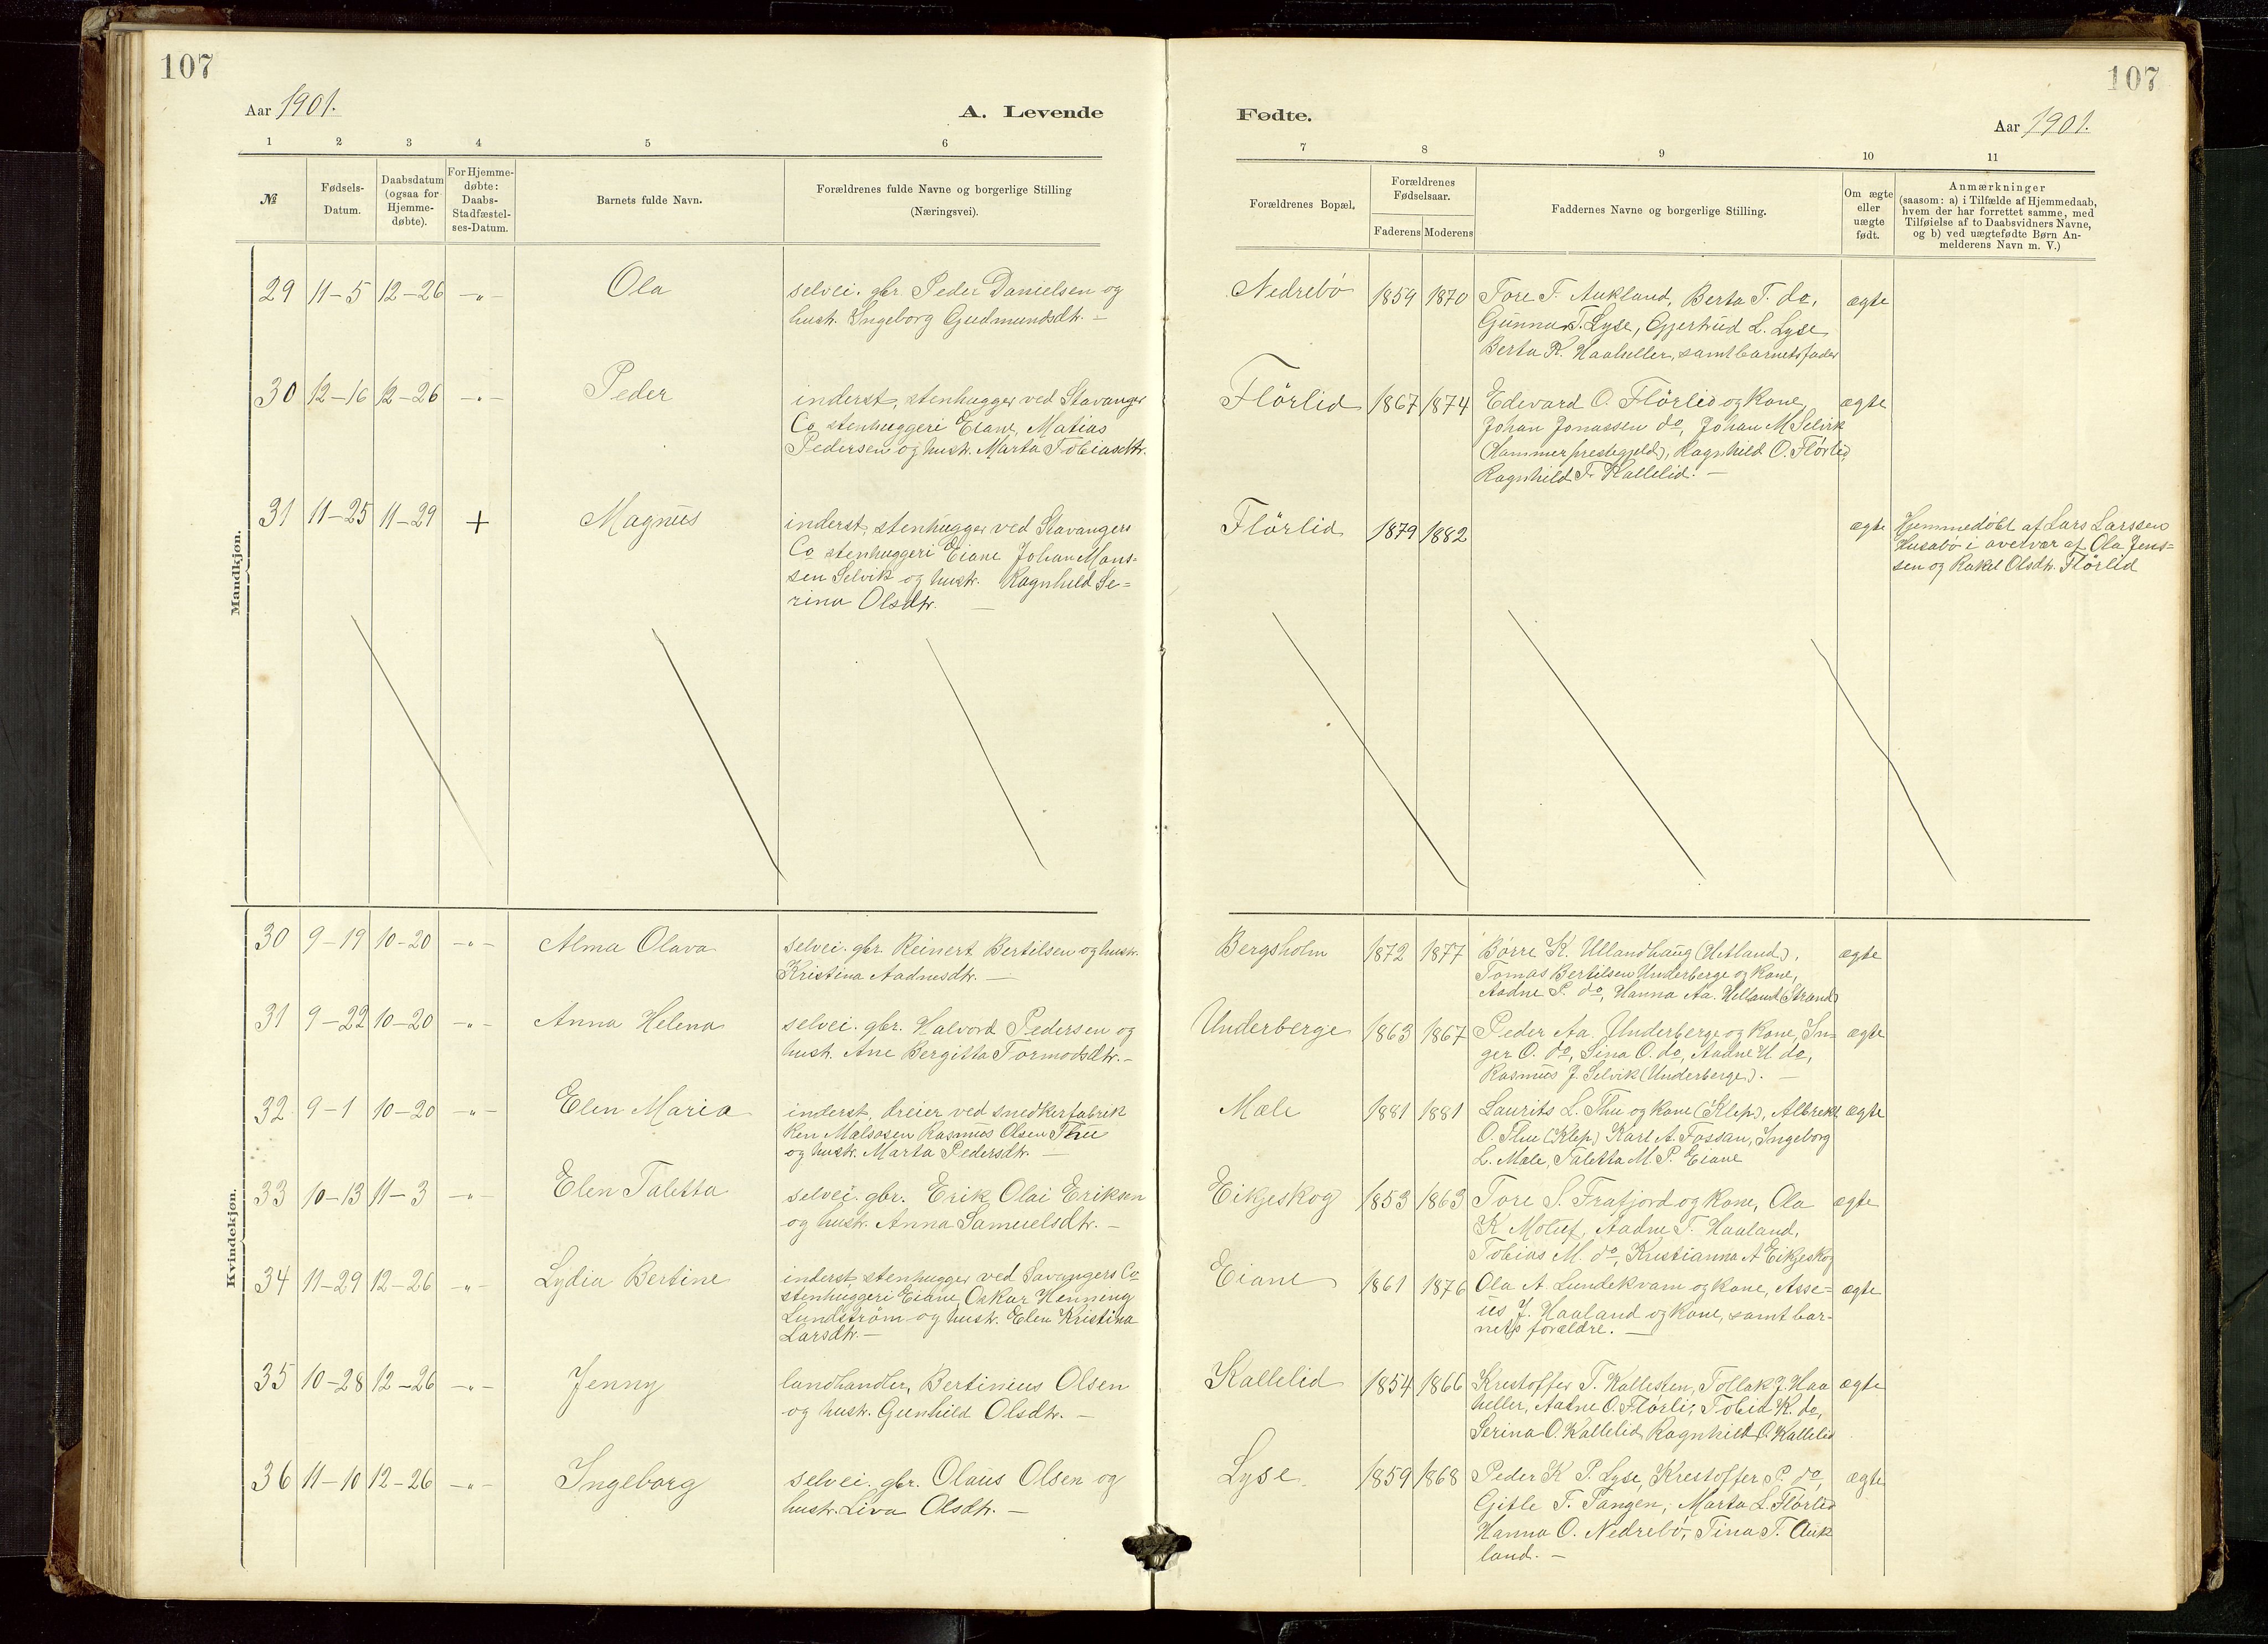 107
107
Aar 1901.
A. Levende
Fødte.
Aar 1901.
1 2 3 4 5 6 7 8 9 10 11
№
Fødsels-
Datum.
Daabsdatum
(ogsaa for
Hjemme-
døbte).
For Hjemme-
døbte:
Daabs-
Stadfæstel-
ses-Datum.
Barnets fulde Navn.
Forældrenes fulde Navne og borgerlige Stilling
(Næringsvei).
Forældrenes Bopæl.
Forældrenes
Fødselsaar.
Faderens Moderens
Faddernes Navne og borgerlige Stilling.
Om ægte
eller
uægte
født.
Anmærkninger
(saasom: a) i Tilfælde af Hjemmedaab,
hvem der har forrettet samme, med
Tilføielse af to Daabsvidners Navne,
og b) ved uægtefødte Børn An-
melderens Navn m. V.)
Mandkjøn.
29 11-5 12-26 -„- Ola
selvei. gbr. Peder Danielsen og
hustr. Ingeborg Gudmundsdtr. -
Nedrebö 1859 1870
Tore T. Aukland, Berta T. do,
Gunnar T. Lyse, Gjertrud L. Lyse,
Berta K. Haaheller, samt barnets fader
ægte
30 12-16 12-26 -„- Peder
inderst, stenhugger ved Stavanger
Co stenhuggeri Eiane, Matias
Pedersen og hustr. Marta Tobiasdtr.
Flörlid 1867 1874
Edevard O. Flörlid og kone,
Johan Jonassen do, Johan M Selvik
(Hammer prestegjeld), Ragnhild O. Flörlid,
Ragnhild T. Kallelid. -
ægte
31 11-25 11-29 + Magnus
inderst, stenhugger ved Stavangers
Co stenhuggeri Eiane Johan Mons=
sen Selvik og hustr. Ragnhild Se=
rina Olsdtr. -
Flörlid 1879 1882
ægte
Hjemmedöbt af Lars Larssen
Husabö i overvær af Ola Jens=
sen og Rakel Olsdtr. Flörlid
Kvindekjøn.
30 9-19 10-20 -„- Alma Olava
selvei. gbr. Reinert Bertilsen og hustr.
Kristina Aadnesdtr. -
Bergsholm 1872 1877
Börre K. Ullandhaug (Hetland),
Tomas Bertilsen Underberge og kone,
Aadne P. do, Hanna Aa. Helland (Strand)
ægte
31 9-22 10-20 -„- Anna Helena
selvei. gbr. Halvord Pedersen og
hustr. Ane Bergitta Tormodsdtr. -
Underberge 1863 1867
Peder Aa. Underberge og kone, In=
ger O. do, Sina O. do, Aadne H. do,
Rasmus J. Selvik (Underberge). -
ægte
32 9-1 10-20 -„- Elen Maria
inderst, dreier ved snedkerfabrik
ken Malsosen Rasmus Olsen Thu
og hustr. Marta Pedersdtr. -
Mæle 1881 1881
Laurits L. Thu og kone (Klep), Albrekt
O. Thu (Klep) Karl A. Fossan, Ingeborg
L. Mæle, Taletta M. P. Eiane
ægte
33 10-13 11-3 -„- Elen Taletta
selvei. gbr. Erik Olai Eriksen
og hustr. Anna Samuelsdtr. -
Eikjeskog 1853 1863
Tore S. Frafjord og kone, Ola
K Moluf, Aadne T. Haaland,
Tobias M. do, Kristianna A Eikjeskog
ægte
34 11-29 12-26 -„- Lydia Bertine
inderst, stenhugger ved Savangers Co
stenhuggeri Eiane, Oskar Henneng
Lundström og hustr. Elen Kristina
Larsdtr. -
Eiane 1861 1876
Ola A. Lundekvam og kone, Asse=
us J. Haaland og kone, samt bar-
nets forældre. -
ægte
35 10-28 12-26 -„- Jenny
landhandler, Bertinius Olsen
og hustr. Gunhild Olsdtr. -
Kallelid 1854 1866
Kristoffer T. Kallesten, Tollak J. Haa
heller, Aadne O. Flörli, Tobia K. do,
Serina O. Kallelid Ragnhild O. Kallelid
ægte
36 11-10 12-26 -„- Ingeborg
selvei. gbr. Olaus Olsen og
hustr. Liva Olsdtr. -
Lyse 1859 1868
Peder K P. Lyse, Krestoffer P. do,
Gitle T. Tangen, Marta L. Flörlid
Hanna O. Nedrebö, Tina T. Auk
land. -
ægte